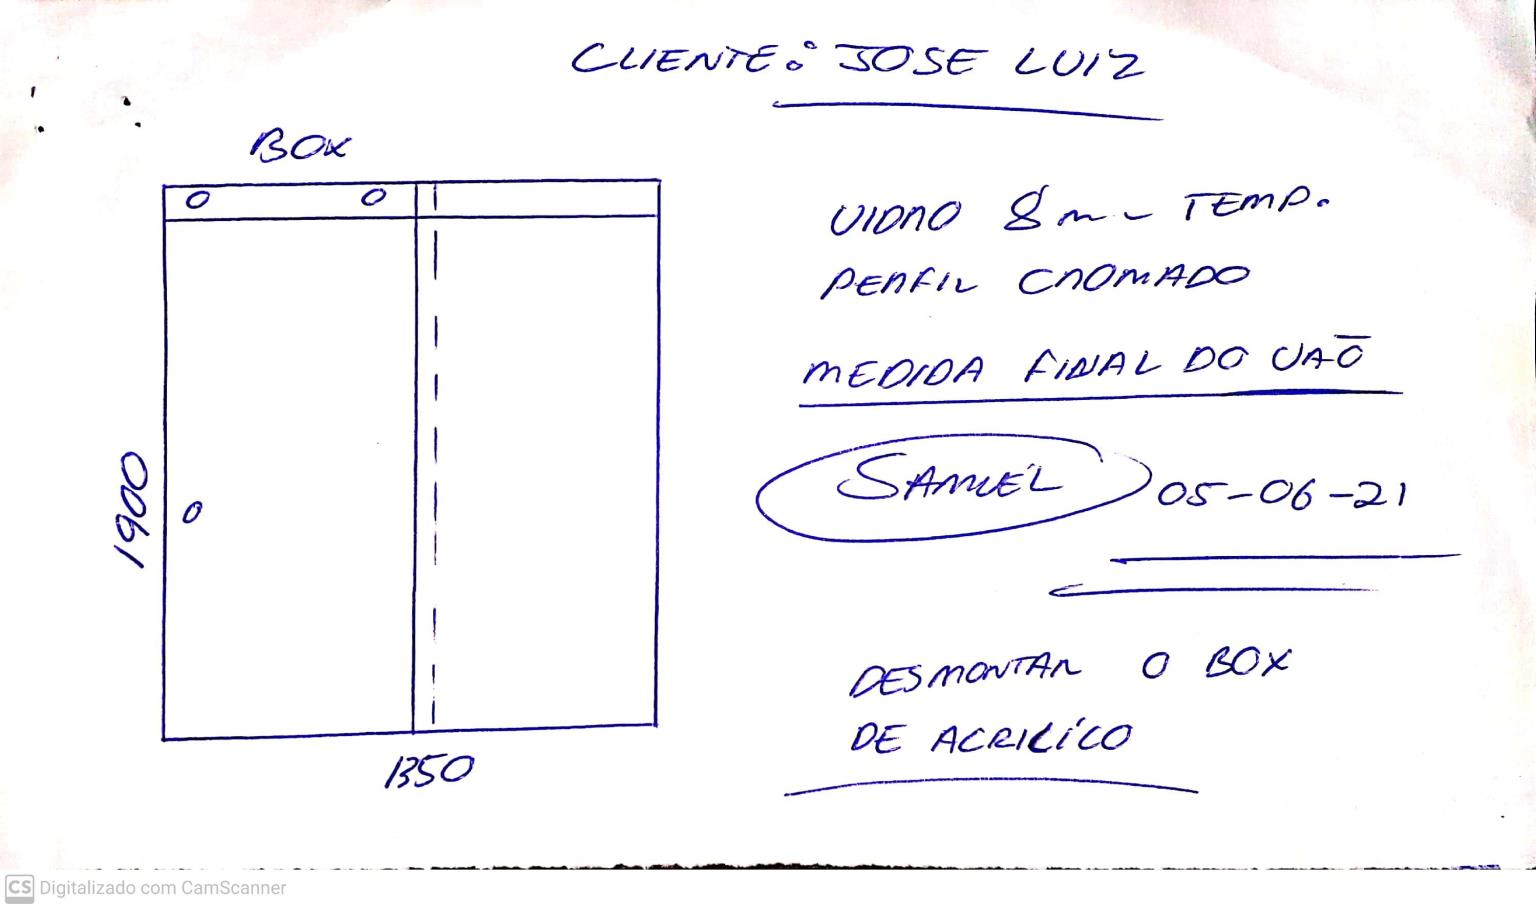 CLIENTE: JOSE LUIZ
BOX
VIDRO 8mm TEMP.
PERFIL CROMADO
MEDIDA FINAL DO VAÕ
1900
SAMUEL 05-06-21
DESMONTAR O BOX
DE ACRILÍCO
1350
CS Digitalizado com CamScanner